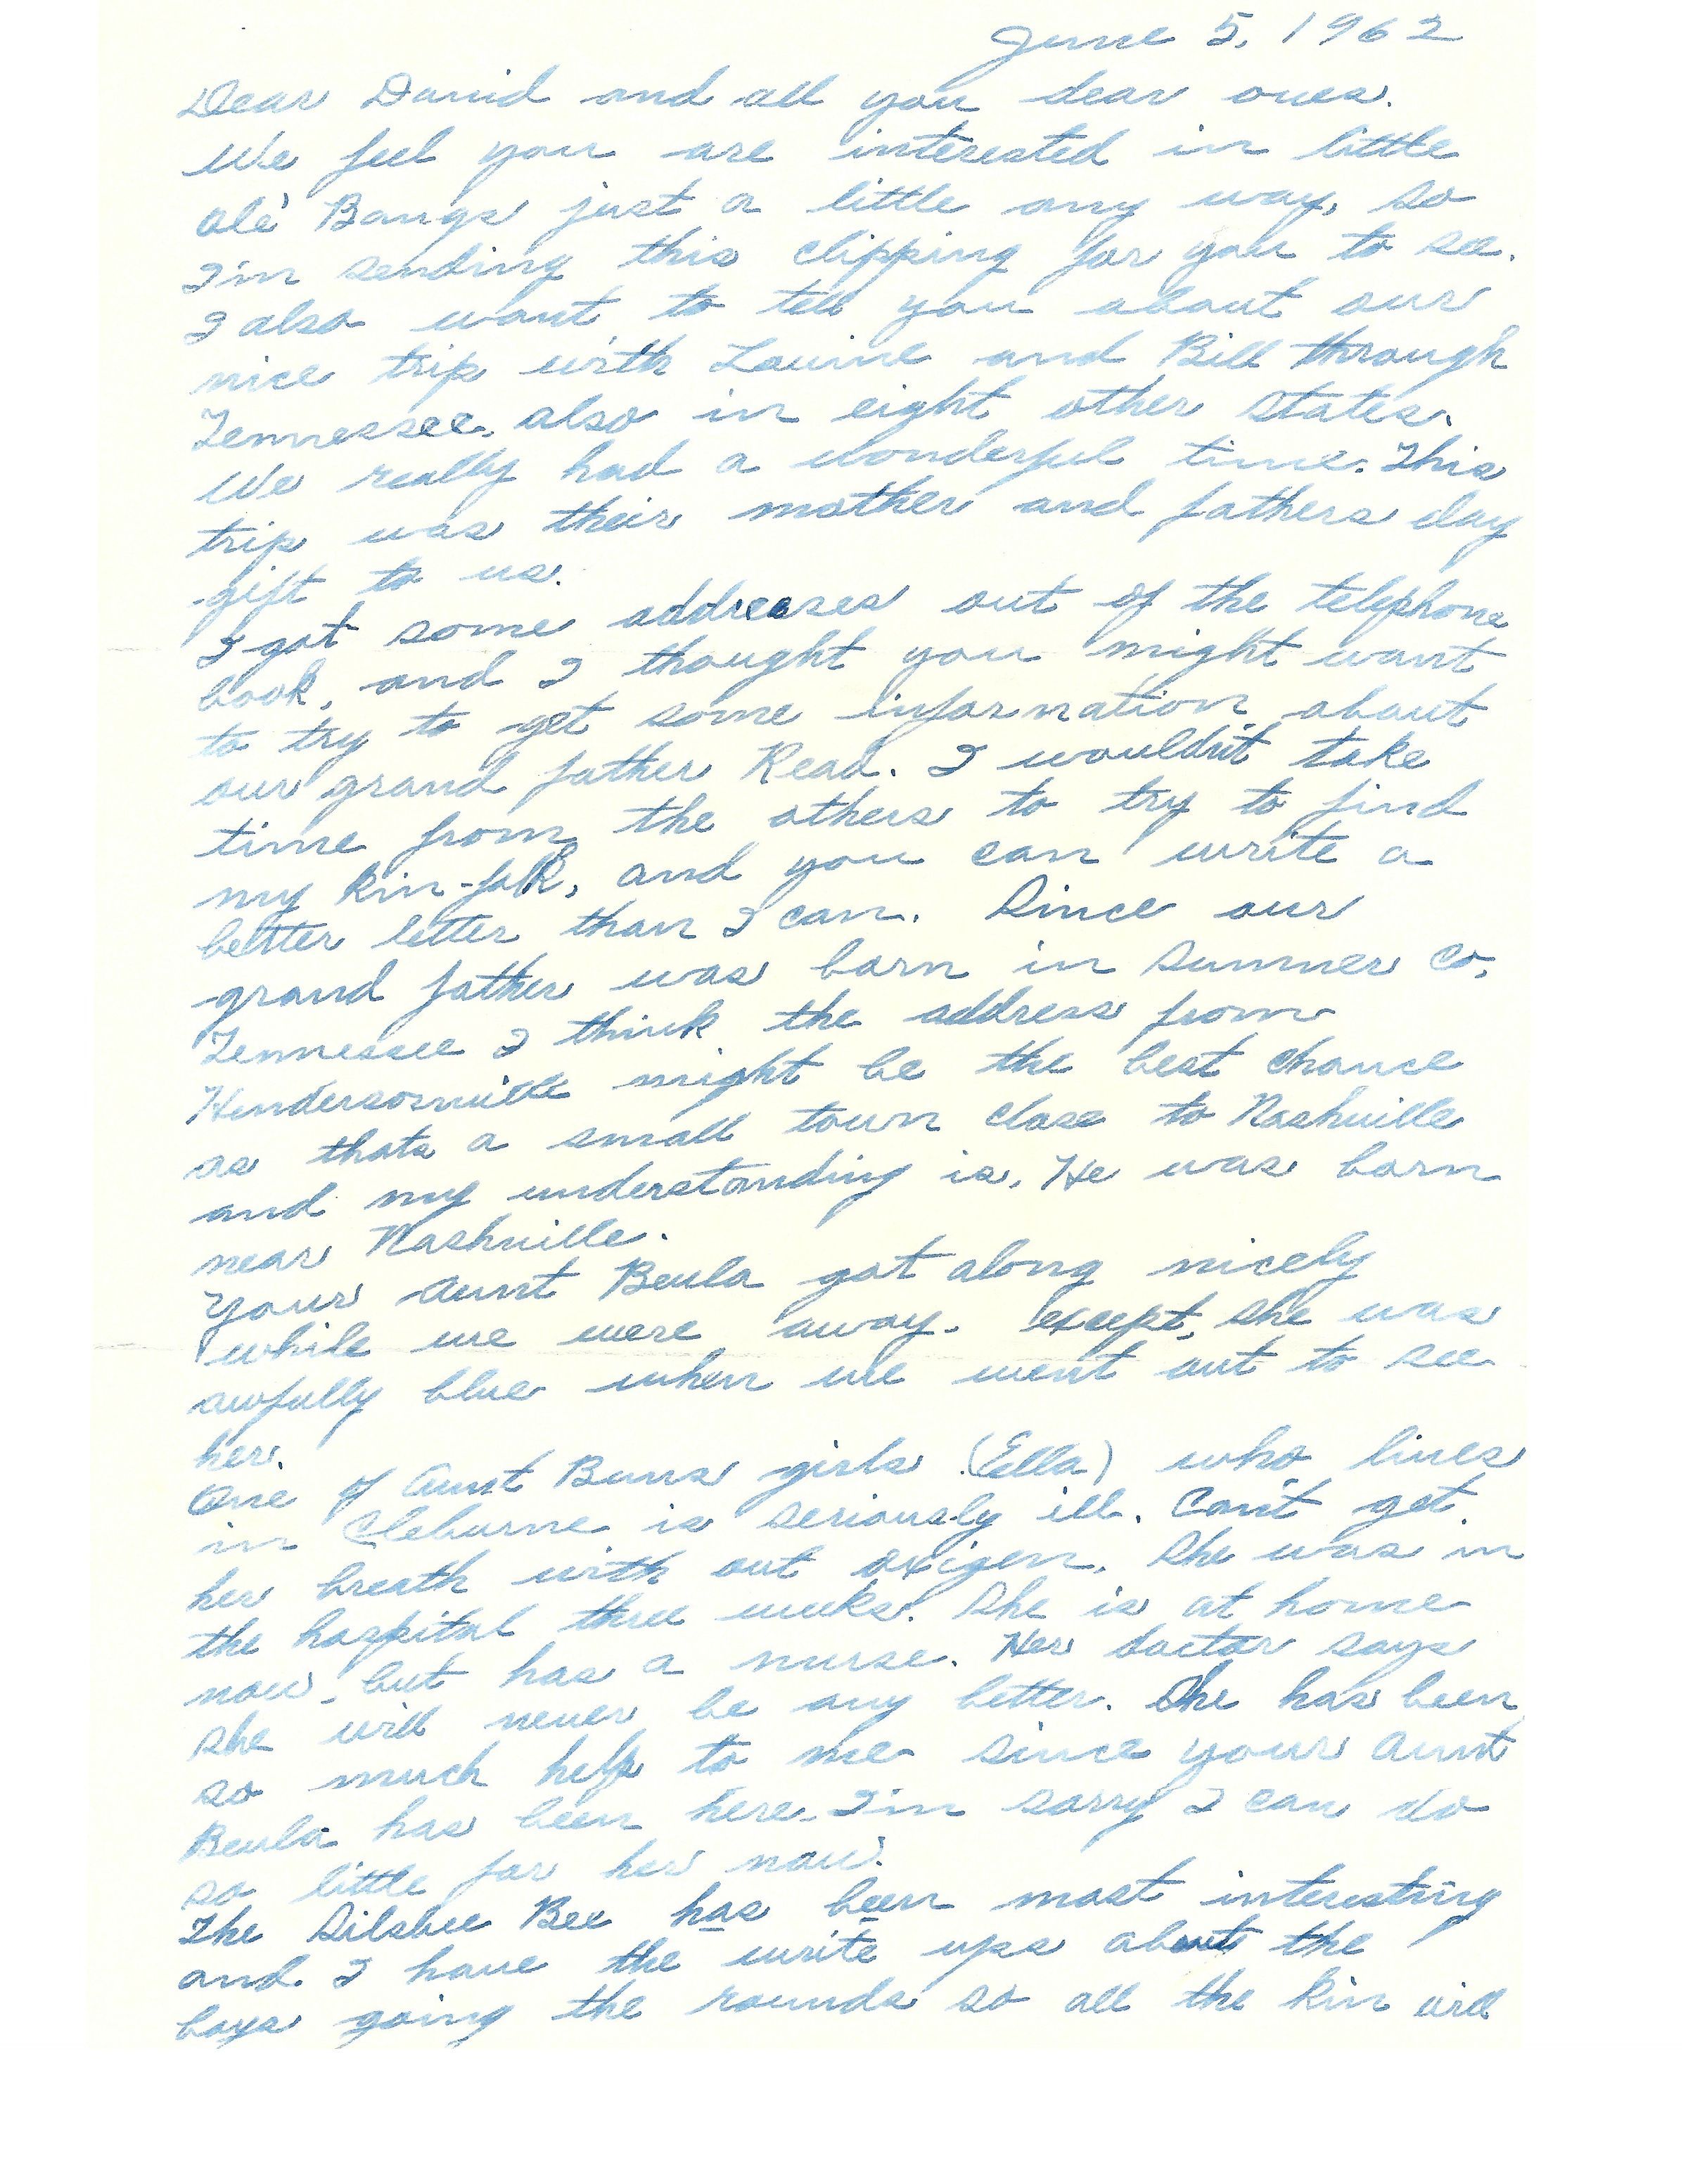 June 5, 1962
Dear David and all you dear ones.
We feel you are interested in little
ole' Bangs just a little any way, so
I'm sending this clipping for you to see.
I also want to tell you about our
nice trip with Louine and Bill through
Tennessee, also in eight other states.
We really had a wonderful time. This
trip was their mother and fathers day
gift to us.
I got some addresses out of the telephone
book, and I thought you might want
to try to get some information about
our grand father Read. I wouldn't take
time from the others to try to find
my kin-folk, and you can write a
better letter than I can. Since our
grand father was born in Sumner Co,
Tennessee I think the address from
Hendersonville might be the best chance
as thats a small town close to Nashville
and my understanding is, He was born
near Nashville.
Your Aunt Beula got along nicely
while we were away. except, she was
awfully blue when we went out to see
her.
One of Aunt Buns girls (Ella) who lives
in Cleburne is seriously ill. Can't get
her breath with out oxigen. She was in
the hospital three weeks. She is at home
now, but has a nurse. Her doctor says
she will never be any better. She has been
so much help to me since your Aunt
Beula has been here. I'm sorry I can do
so little for her now.
The Silsbee Bee has been most interesting
and I have the write ups about the
boys going the rounds so all the kin will